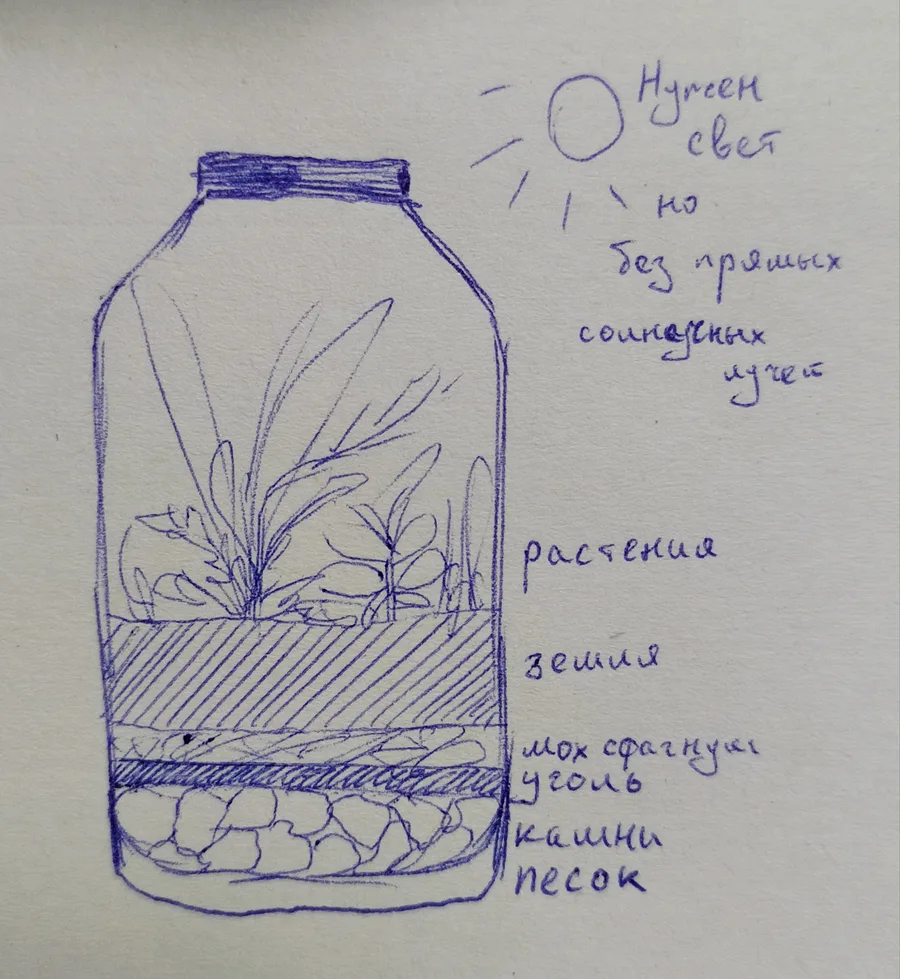 Нужен
свет
но
без прямых
солнечных
лучей
растения
земля
мох сфагнум
уголь
камни
песок